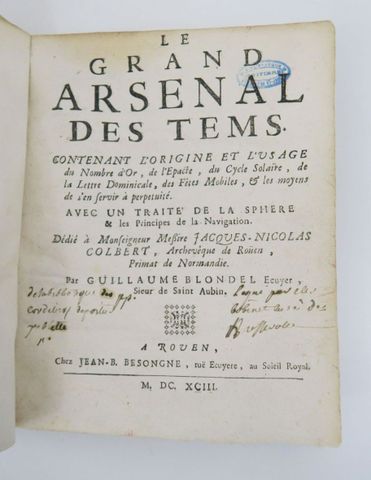 LE
GRAND
ARSENAL
DES TEMS.
CONTENANT L'ORIGINE ET L'USAGE
du Nombre d'Or, de l'Epacte, du Cycle Solaire, de
la Lettre Dominicale, des Fêtes Mobiles, & les moyens
de s'en servir à perpetuité.
AVEC UN TRAITÉ DE LA SPHERE
& les Principes de la Navigation.
Dédié à Monseigneur Messire JACQUES-NICOLAS
COLBERT, Archevêque de Roüen,
Primat de Normandie.
Par GUILLAUME BLONDEL Ecuyer,
Sieur de Saint Aubin.
A ROUEN,
Chez JEAN-B. BESONGNE, ruë Ecuyere, au Soleil Royal.
M. DC. XCIII.